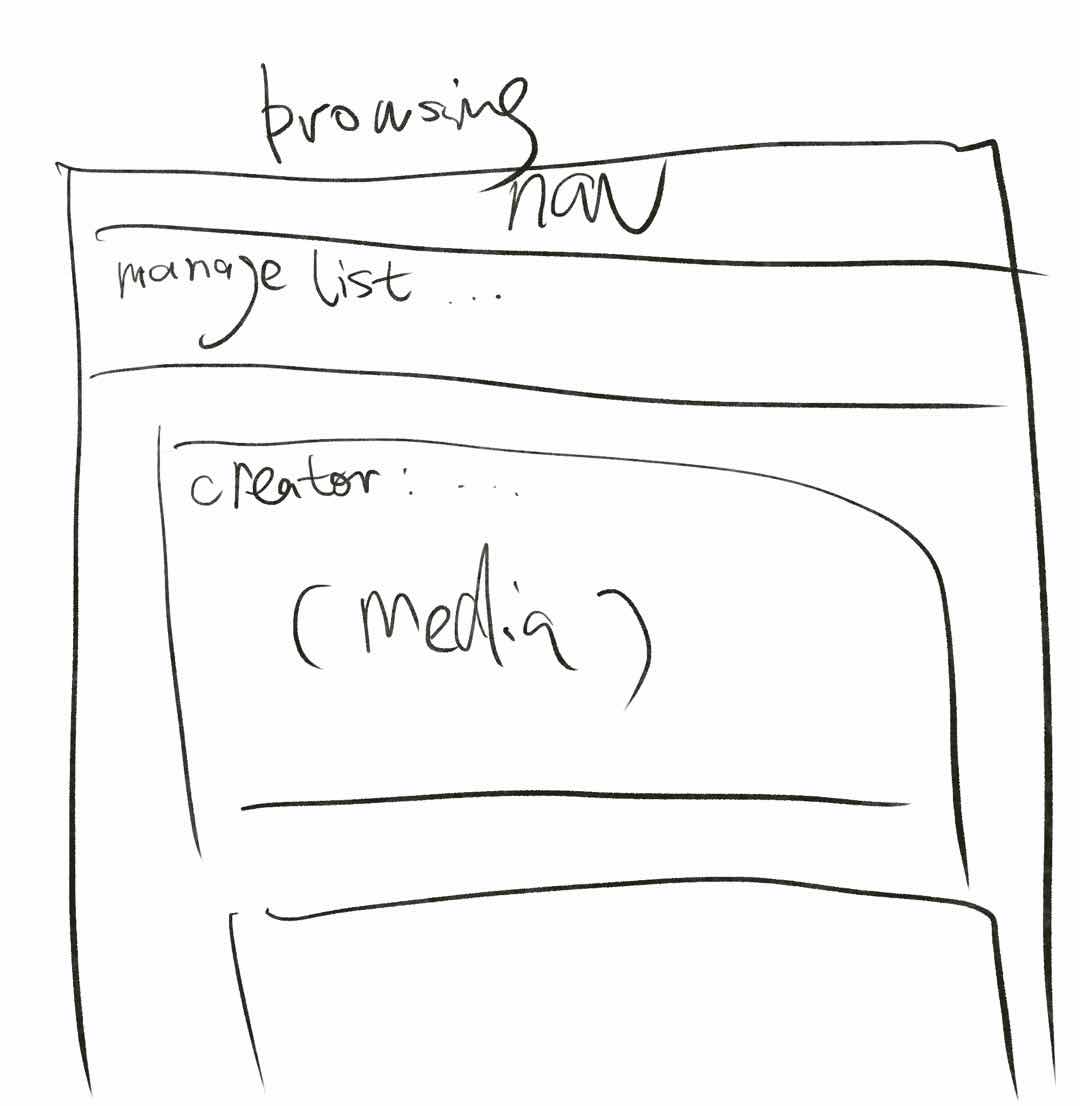 browsing
nav
manage list ...
creator: ...
(media)